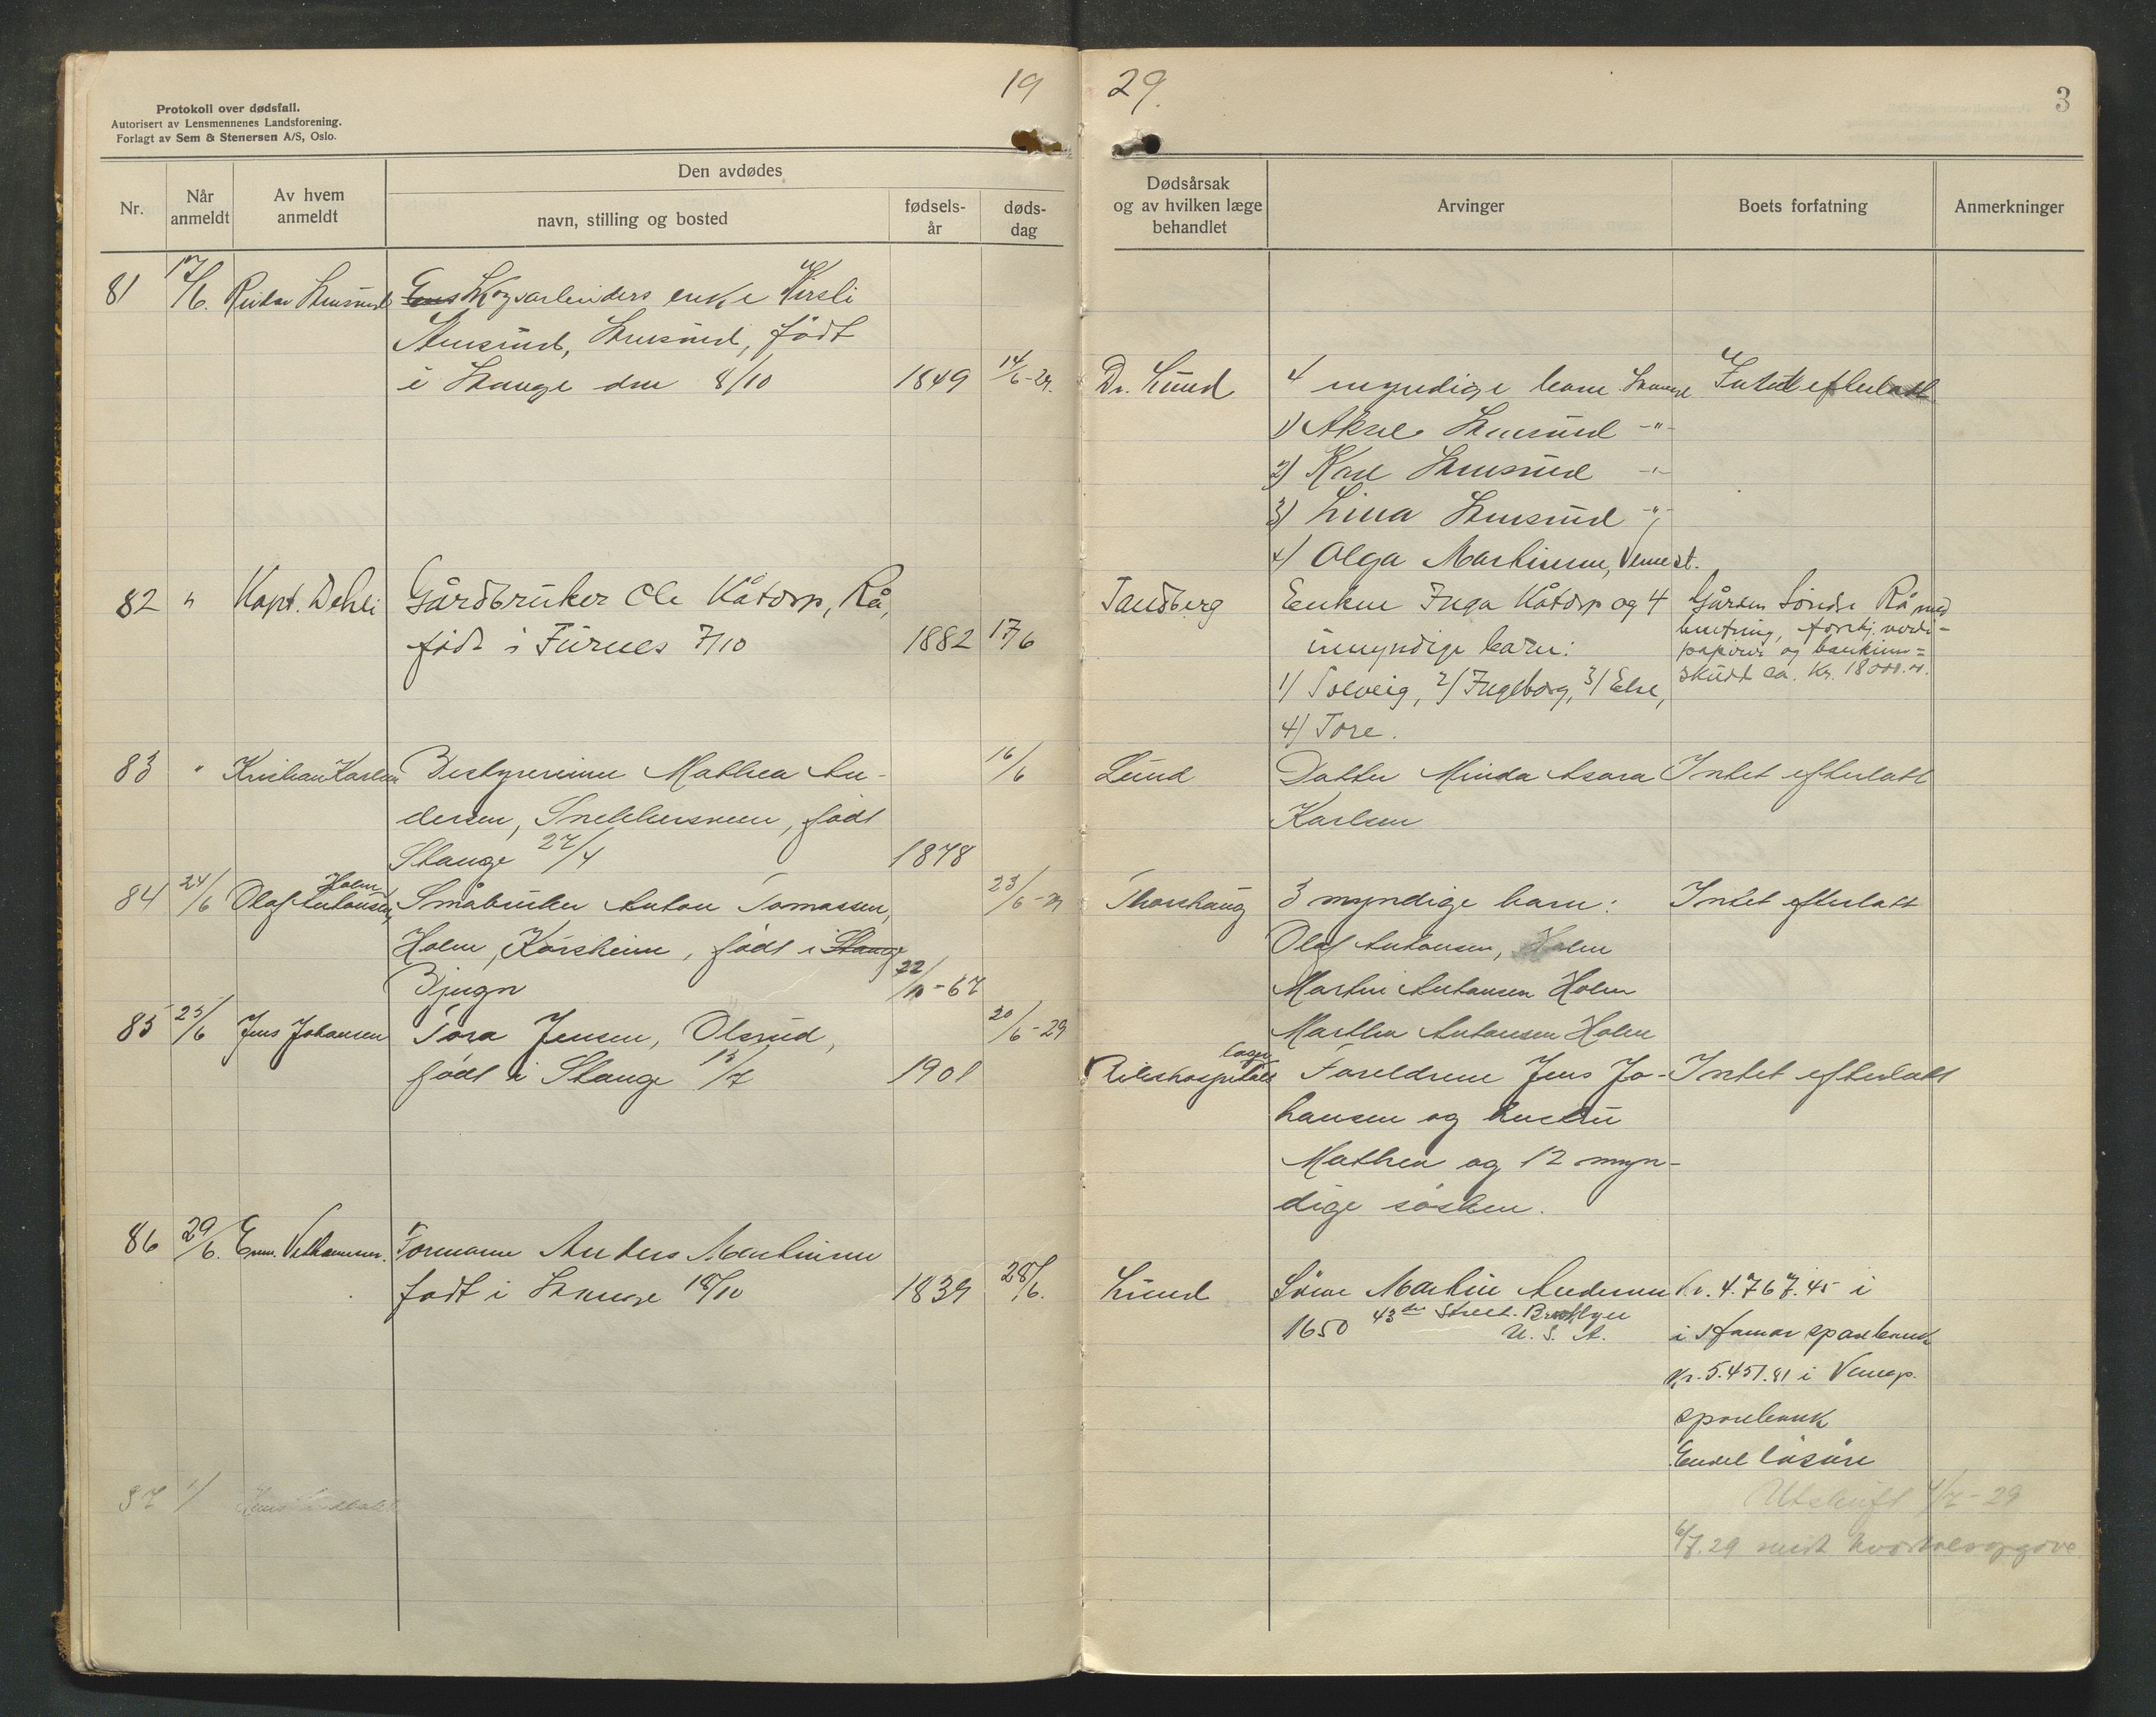 19 29.
3
Protokoll over dødsfall.
Autorisert av Lensmennenes Landsforening.
Forlagt av Sem & Stenersen A/S, Oslo.
Nr.
Når anmeldt
Av hvem anmeldt
Den avdødes
navn, stilling og bosted
fødsels-år
døds-dag
Dødsårsak og av hvilken læge behandlet
Arvinger
Boets forfatning
Anmerkninger
81 17/6. Reidar
Skogsarbeiders enke Kirsti
født
i Stange den 8/10 1849 14/6-29.
Dr. Lund
4 myndige barn Stange
Intet efterlatt
1) Aksel -"-
2) Karl -"-
3) Lina -"-
4) Olga Martinsen,
82 " Kapt. Dehli Gårdbruker Ole Kåtorp, Rå,
født i Furnes 7/10 1882 17/6
Tandberg
Enken Inga Kåtorp og 4
umyndige barn:
1) Solveig, 2) Ingeborg, 3) Else,
4) Tore.
Gården Søndre Rå med
forskj. verdi-
papirer og bankinn=
skudd ca. kr. 18000.
83 " Kristian Karlsen Bestyrerinne Mathea An-
dersen, født
Stange 27/4 1878
16/6
Lund
Datter Minda Asora
Karlsen
Intet efterlatt
84 24/6 Olaf Antonsen Holm Småbruker Anton Tomassen,
Holm, Korsheim, født i Stange
Bjugn 22/10-67
23/6-29
Thorshaug
3 myndige barn:
Olaf Antonsen, Holm
Martin Antonsen Holm
Martha Antonsen Holm
Intet efterlatt
85 25/6 Jens Johansen Tora Jensen, Olsrud,
født i Stange 13/7 1901
20/6-29
Rikshospitalet
Foreldrene Jens Jo-
hansen og hustru
Mathea og 12 myn-
dige søsken.
Intet efterlatt
86 29/6. Formann Anders Martinsen
født i Stange 18/10 1839 28/6.
Lund
Sønn Martin Andersen
1650 43de Street. Brooklyn
U. S. A.
Kr. 4.767.45 i
i Hamar sparebank
Kr. 5.451.81 i
sparebank
Endel løsøre
Utskrift 4/7-29
6/7.29 sendt kvartalsopgave
87 1/